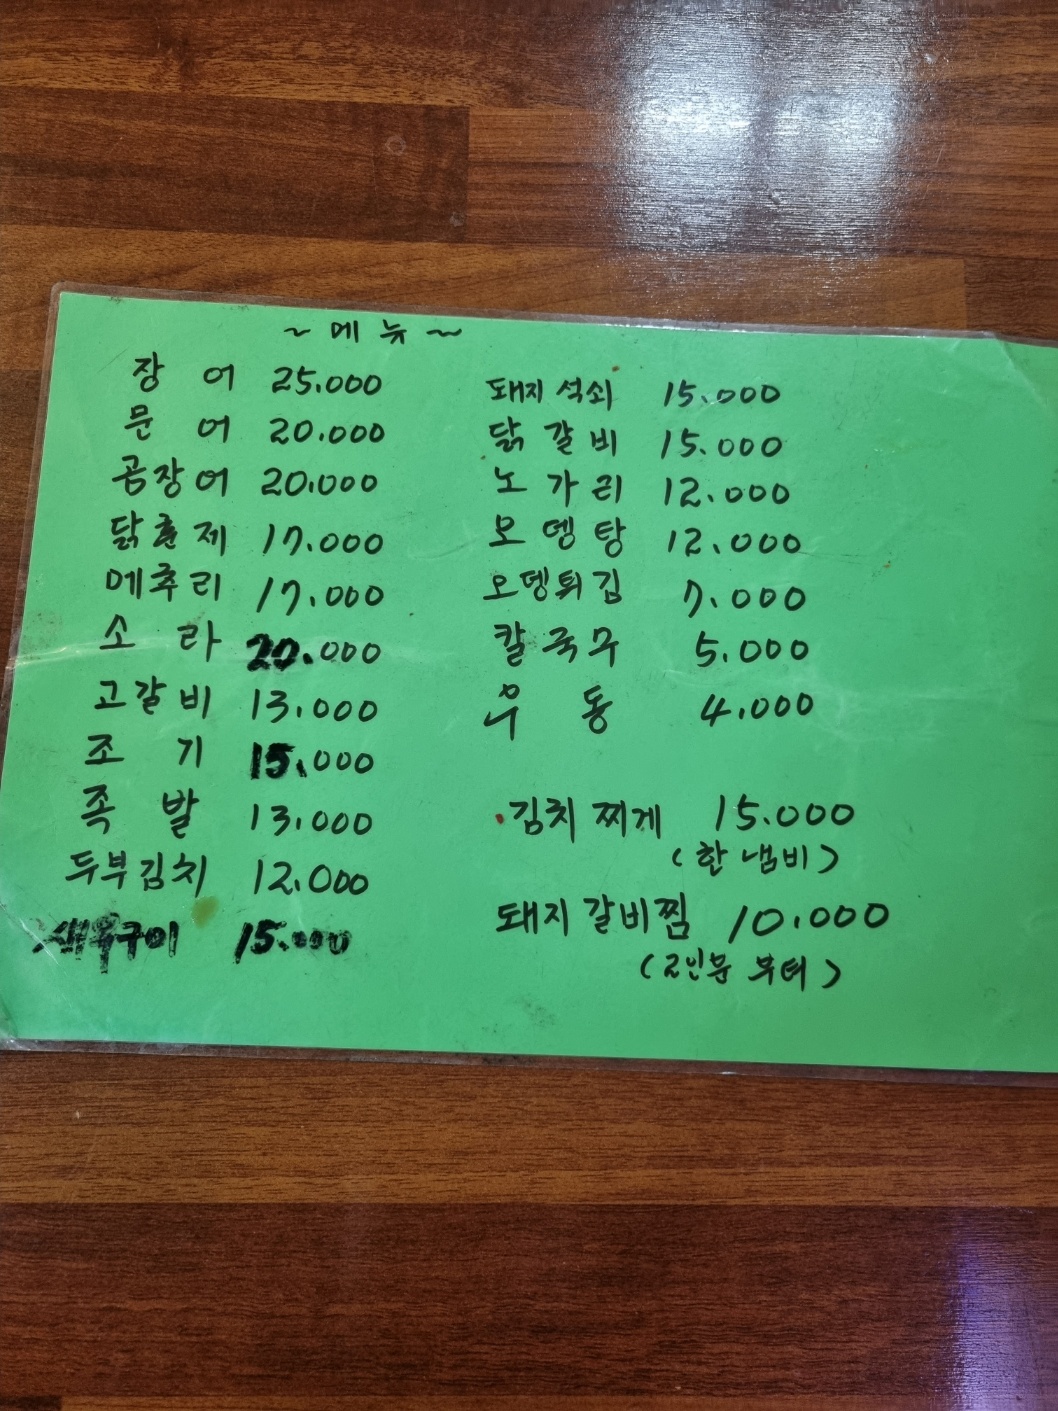 ~ 메뉴 ~
장 어 25.000
문 어 20.000
곰장어 20.000
닭훈제 17.000
메추리 17.000
소 라 20.000
고갈비 13.000
조 기 15.000
족 발 13.000
두부김치 12.000
새우구이 15.000
돼지 석쇠 15.000
닭갈비 15.000
노가리 12.000
오뎅탕 12.000
오뎅튀김 7.000
칼국수 5.000
우 동 4.000
김치 찌게 15.000
(한 냄비)
돼지 갈비찜 10.000
(2인분 부터)